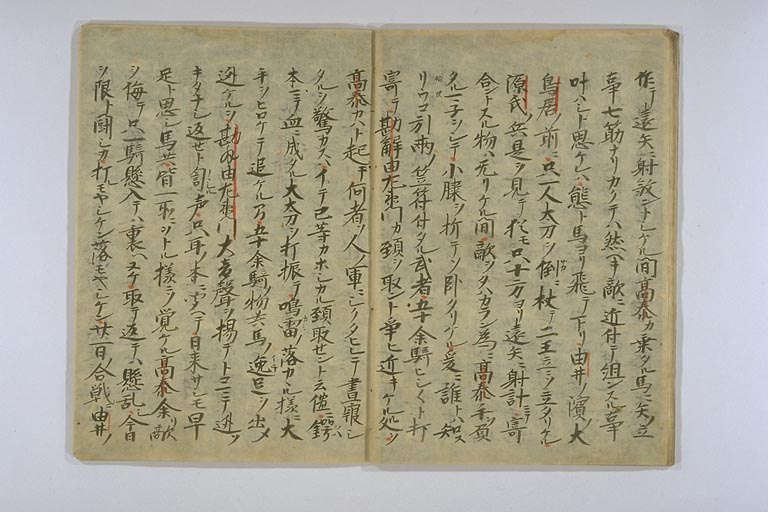 作テ遠矢ニ射殺ントシケル間髙泰カ乗タル馬ニ矢ノ立
事七筋ナリカクテハ然ヘキ敵ニ近付テ組ンスル事
叶ハシト思ケレハ態ト馬ヨリ飛テ下リ由井ノ濱ノ大
鳥居ノ前ニ只一人太刀ヲ倒ニ杖テ二王立ニソ立タリケル
源氏ノ兵是ヲ見テ猶モ只十二方ヨリ遠矢ニ射計ニテ寄
合ントスル物ハ无リケル間敵ヲタハカラン為ニ髙泰手ヲ負
タル于シテ小膝ヲ折テソ臥タリケル爰ニ誰トハ知ス
リウコ引両ノ笠符付タル武者五十余騎ヒシ〱ト打
寄テ勘解由左衛門カ頚ヲ取ント争ヒ近キケル処ヲ
髙泰カハト起テ何者ソ人ノ軍ニシクタヒレテ晝寢シ
タルヲ驚カスハイテ己等カホシカル頚取セント云儘ニ鐔
本ニテ血ニ成タル大太刀ヲ打振テ鳴雷ノ落カヽル様ニ大
手ヲヒロケテ追ケル間五十余騎ノ物共馬ノ逸足ヲ出メ
迯ケルヲ勘解由左衛門大音聲ヲ揚テトコマテ迯ソ
キタナシ返セト訇声只耳ノ本ニ聞ヘテ日来サシモ早
足ト思シ馬共皆一所ニヲトル様ニソ覚ケル髙泰余リノ敵
ヲ侮テ只一騎懸入テハ裏ヘヌケ取テ返テハ懸乱シ今日
ヲ限ト闘シカ打モヤシケン落モヤシケン廿一日ノ合戦ニ由井ノ